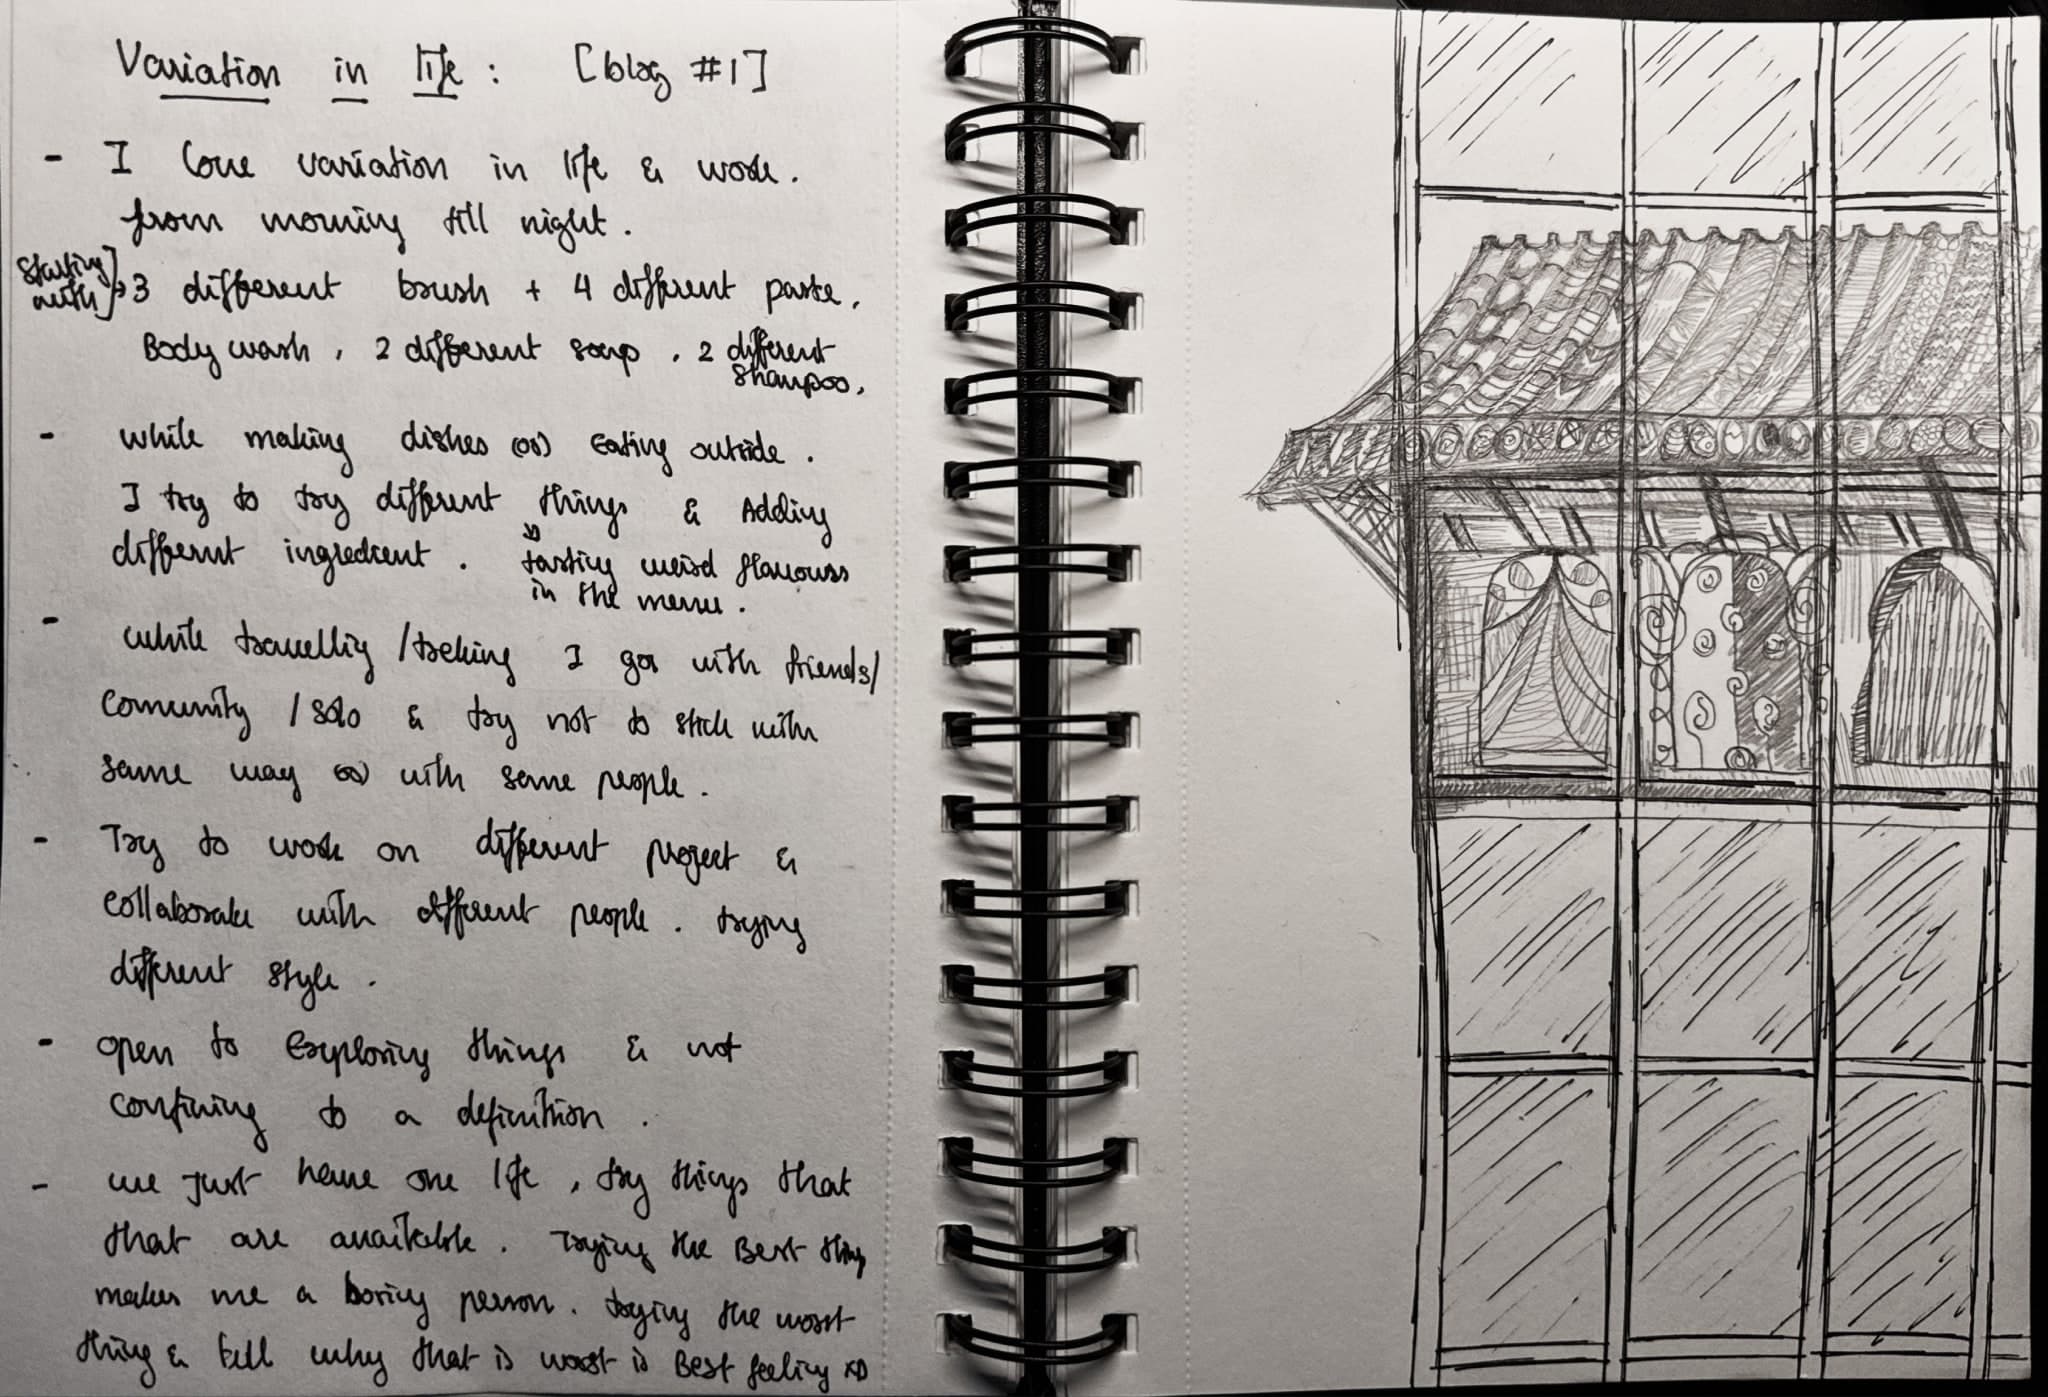 Variation in life : [blog #1]
- I love variation in life & work.
from morning till night.
starting with] → 3 different brush + 4 different paste,
Body wash, 2 different soap, 2 different
shampoo,
- while making dishes (or) Eating outside.
I try to try different things & Adding
different ingredient. tasting weird flavours
in the menu.
- while travellig /treking I go with friends/
Comunity / solo & try not to stick with
same way (or) with same people.
- Try to work on different project &
collaborate with different people. trying
different style.
- open to Exploring things & not
confining to a definition.
- we just have one life, try things that
that are available. Trying the Best thing
makes me a boring person. trying the worst
thing & tell why that is worst is Best feeling XD